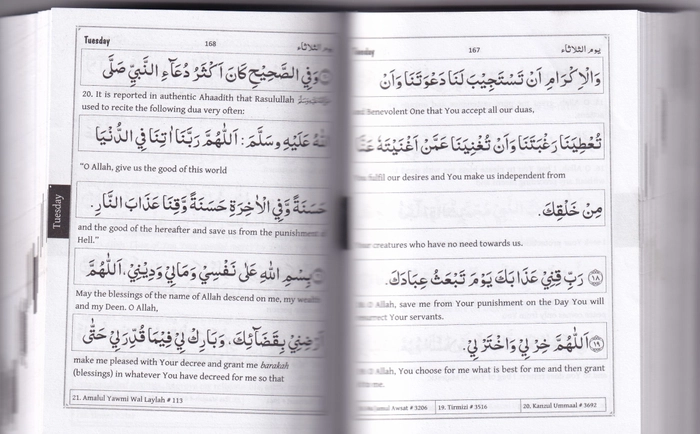 Tuesday 167 يوم الثلاثاء
وَالْاِكْرَامِ اَنْ تَسْتَجِيْبَ لَنَا دَعْوَتَنَا وَاَنْ
Benevolent One that You accept all our duas,
تُعْطِيَنَا رَغْبَتَنَا وَاَنْ تُغْنِيَنَا عَمَّنْ اَغْنَيْتَهٗ عَنَّا
fulfil our desires and You make us independent from
مِنْ خَلْقِكَ.
creatures who have no need towards us.
۱۸ رَبِّ قِنِيْ عَذَابَكَ يَوْمَ تَبْعَثُ عِبَادَكَ.
Allah, save me from Your punishment on the Day You will
Your servants.
۱۹ اَللّٰهُمَّ خِرْ لِيْ وَاخْتَرْ لِيْ.
Allah, You choose for me what is best for me and then grant
me.
Awsat # 3206 19. Tirmizi # 3516 20. Kanzul Ummaal # 3692
Tuesday 168 يوم الثلاثاء
وَفِي الصَّحِيْحِ كَانَ اَكْثَرُ دُعَآءِ النَّبِيِّ صَلَّى
20. It is reported in authentic Ahaadith that Rasulullah
used to recite the following dua very often:
اللهُ عَلَيْهِ وسَلَّمَ: اَللّٰهُمَّ رَبَّنَا اٰتِنَا فِي الدُّنْيَا
"O Allah, give us the good of this world
حَسَنَةً وَّفِي الْاٰخِرَةِ حَسَنَةً وَّقِنَا عَذَابَ النَّارِ.
and the good of the hereafter and save us from the punishment of
Hell."
بِسْمِ اللهِ عَلٰى نَفْسِيْ وَمَالِيْ وَدِيْنِيْ. اَللّٰهُمَّ
May the blessings of the name of Allah descend on me, my wealth
and my Deen. O Allah,
اَرْضِنِيْ بِقَضَآئِكَ. وَبَارِكْ لِيْ فِيْمَا قُدِّرَ لِيْ حَتّٰى
make me pleased with Your decree and grant me barakah
(blessings) in whatever You have decreed for me so that
21. Amalul Yawmi Wal Laylah # 113
Tuesday